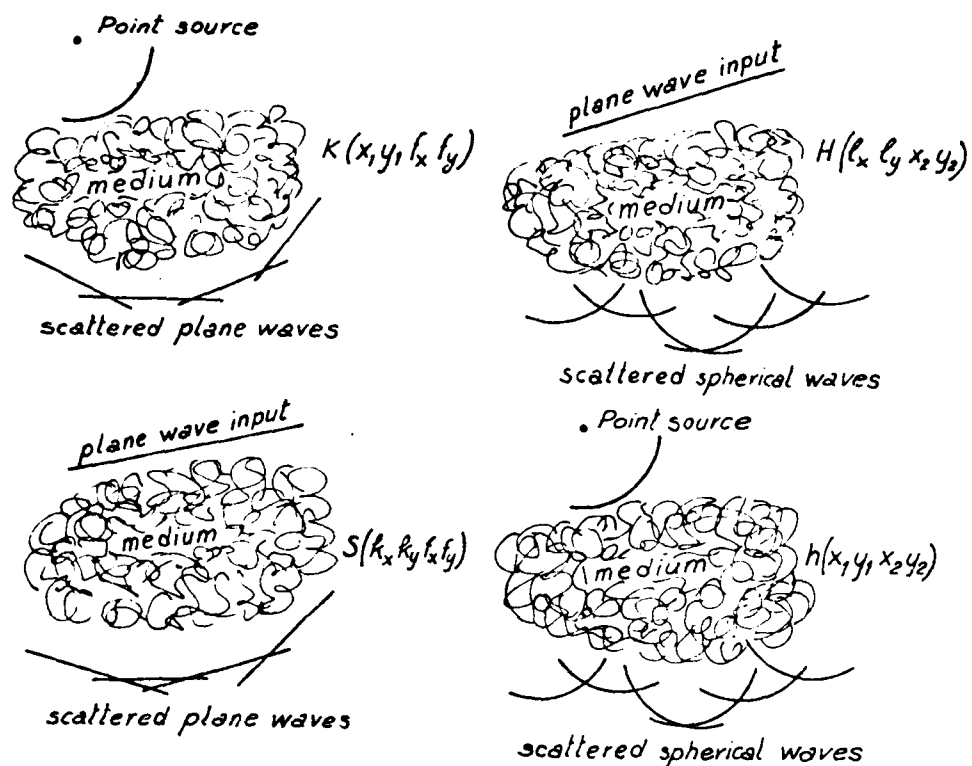 Point source
medium
K(x₁y₁ fₓ f_y)
scattered plane waves
plane wave input
medium
H(ℓₓ ℓ_y x₂y₂)
scattered spherical waves
plane wave input
medium
S(kₓ k_y fₓ f_y)
scattered plane waves
Point source
medium
h(x₁y₁ x₂y₂)
scattered spherical waves